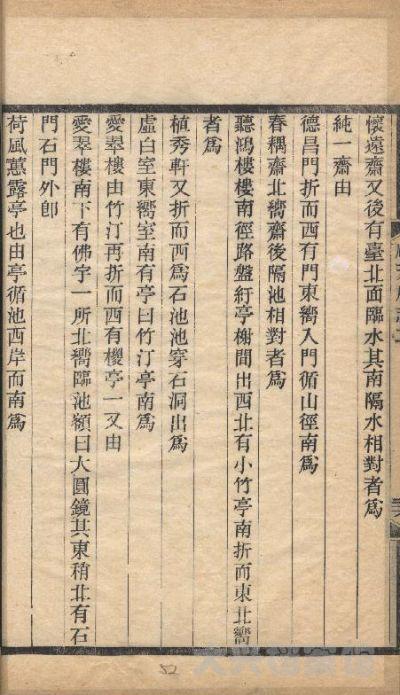 懷遠齋又後有臺北面臨水其南隔水相對者爲
純一齋由
德昌門折而西有門東嚮入門循山徑南爲
春耦齋北嚮齋後隔池相對者爲
聽鴻樓樓南徑路盤紆亭榭間出西北有小竹亭南折而東北嚮
者爲
植秀軒又折而西爲石池池穿石洞出爲
虛白室東嚮室南有亭曰竹汀亭南爲
愛翠樓由竹汀再折而西有㰚亭一又由
愛翠樓南下有佛宇一所北嚮臨池額曰大圓鏡其東稍北有石
門石門外卽
荷風蕙露亭也由亭循池西岸而南爲
52